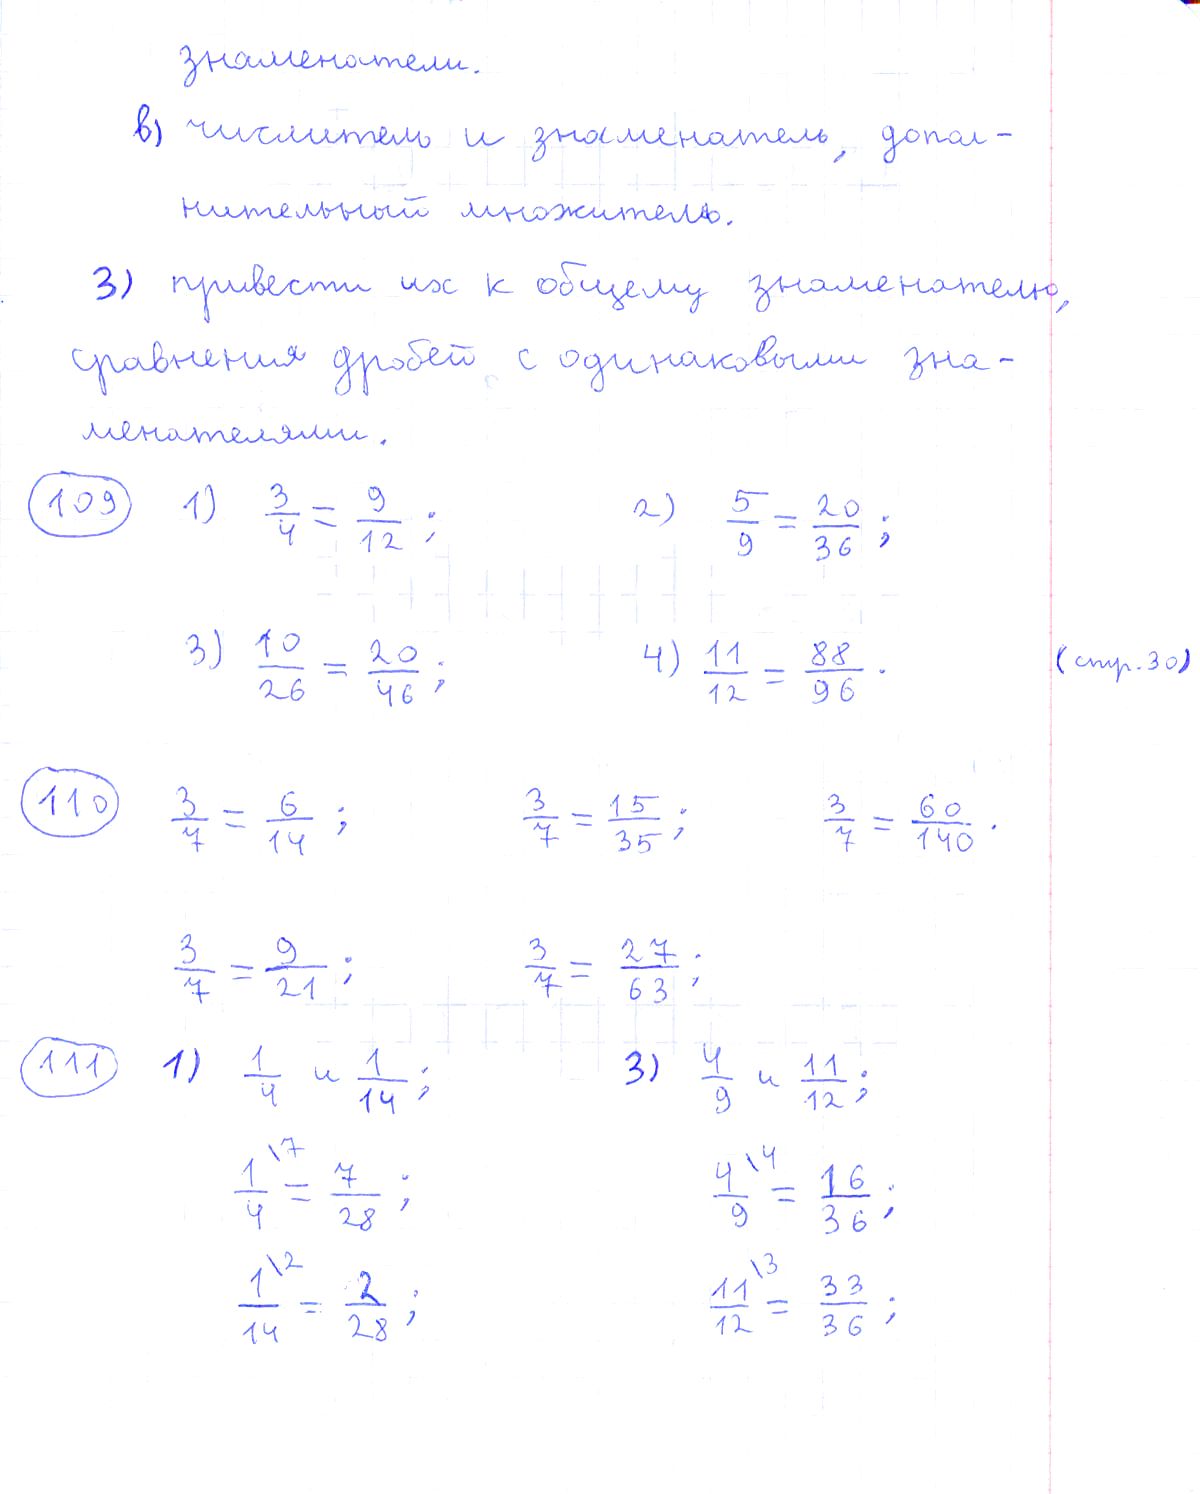 знаменатели.
в) числитель и знаменатель, допол-
нительный множитель.
3) привести их к общему знаменателю,
сравнения дробей с одинаковыми зна-
менателями.
109 1) 3/4 = 9/12; 2) 5/9 = 20/36;
3) 10/26 = 20/46; 4) 11/12 = 88/96. (стр. 30)
110 3/7 = 6/14; 3/7 = 15/35; 3/7 = 60/140.
3/7 = 9/21; 3/7 = 27/63;
111 1) 1/4 и 1/14; 3) 4/9 и 11/12;
1/4 \7 = 7/28; 4/9 \4 = 16/36;
1/14 \2 = 2/28; 11/12 \3 = 33/36;